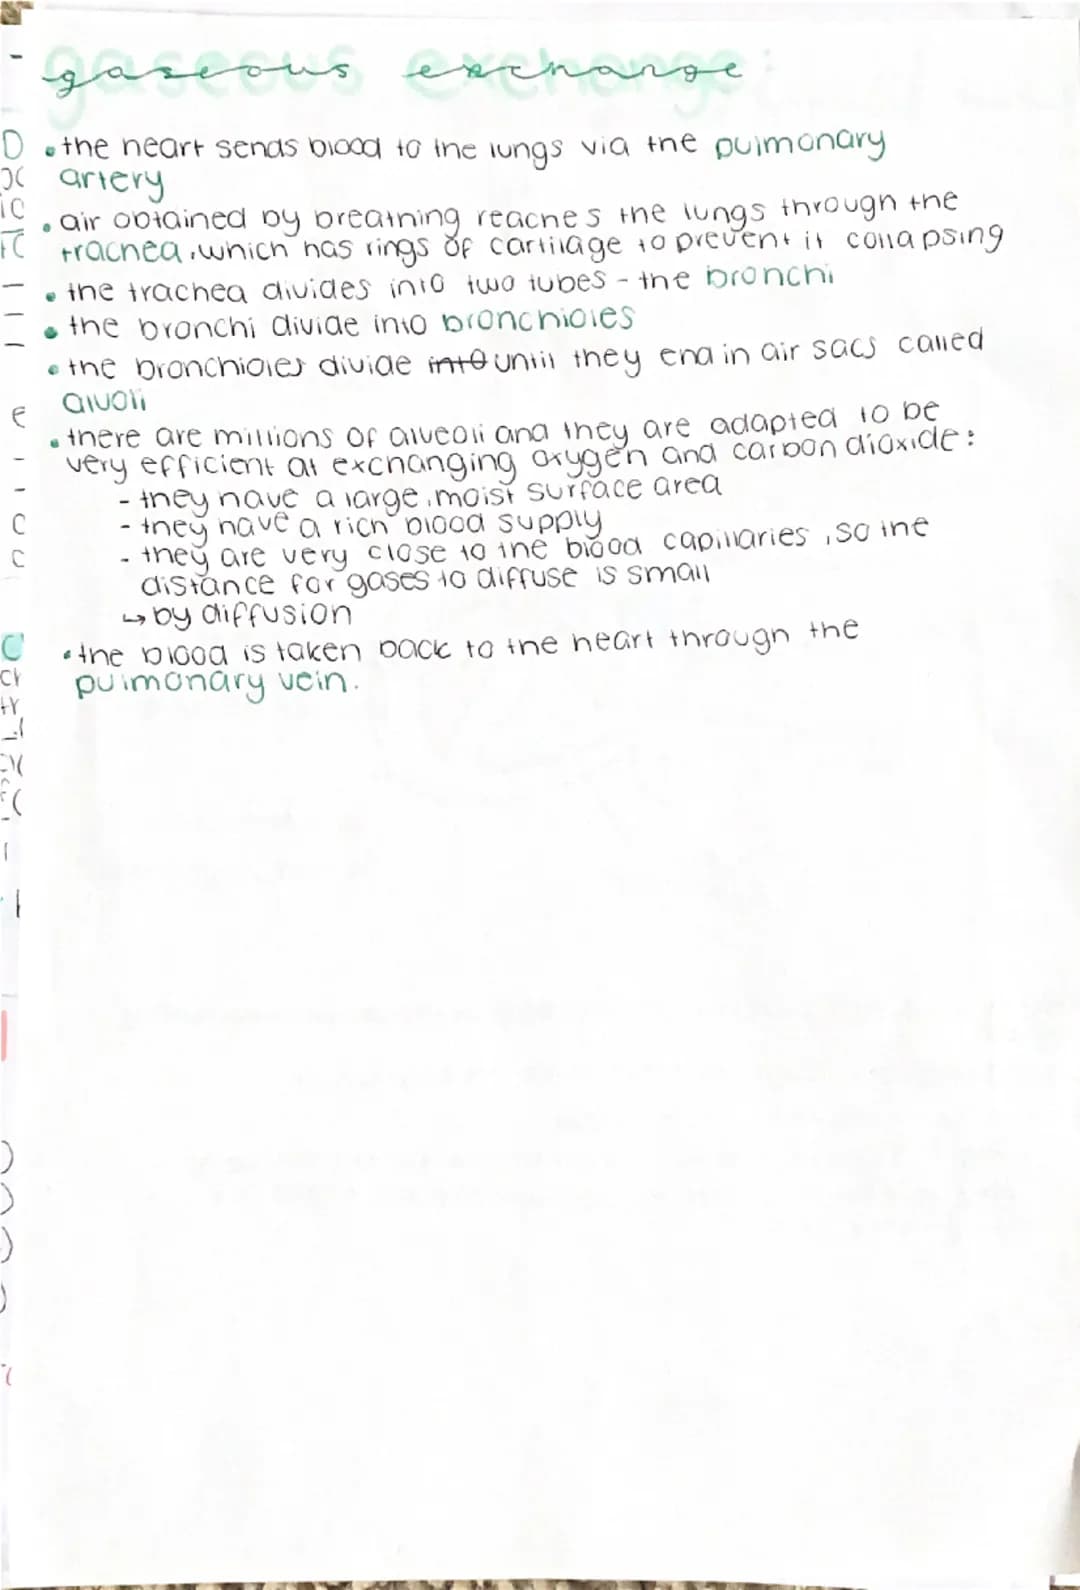 gaseous exchange:
• the heart sends blood to the lungs via the pulmonary
artery
• air obtained by breathing reaches the lungs through the
trachea, which has rings of cartilage to prevent it collapsing
• the trachea divides into two tubes - the bronchi
• the bronchi divide into bronchioles
• the bronchioles divide into until they end in air sacs called
alvoli
• there are millions of alveoli and they are adapted to be
very efficient at exchanging oxygen and carbon dioxide:
- they have a large, moist surface area
- they have a rich blood supply
- they are very close to the blood capillaries, so the
distance for gases to diffuse is small
↳ by diffusion
• the blood is taken back to the heart through the
pulmonary vein.